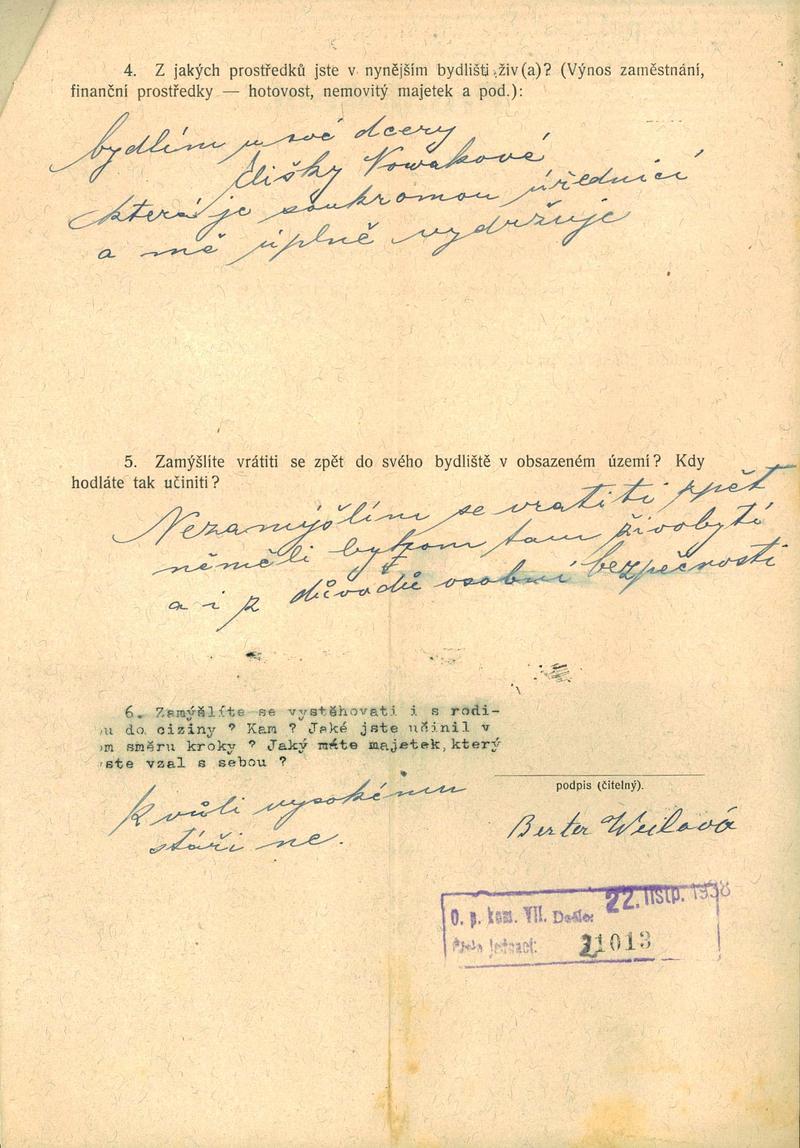 4. Z jakých prostředků jste v nynějším bydlišti živ(a)? (Výnos zaměstnání,
finanční prostředky — hotovost, nemovitý majetek a pod.):
bydlím u své dcery
Elišky Nowakové
která je soukromou úřednicí
a mě úplně vydržuje
5. Zamýšlíte vrátiti se zpět do svého bydliště v obsazeném území? Kdy
hodláte tak učiniti?
Nezamýšlím se vratiti zpět
něměli bychom tam živobytí
a i z důvodů osobní bezpěčnosti
6. Zamýšlíte se vystěhovati i s rodi-
u do ciziny ? Kam ? Jaké jste učinil v
om směru kroky ? Jaký máte majetek, který
ste vzal s sebou ?
podpis (čitelný).
Kvůli vysokému
stáři ne.
Weilová
22. listp. 1938
O. p. kom. VII. Došlo:
Číslo jednací: 21013